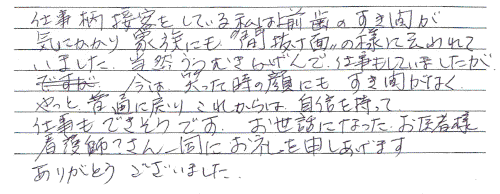 仕事柄 接客をしている私は前歯のすき間が
気にかかり 家族にも"間抜け面"の様に云われて
いました。当然うつむきかげんで仕事もしていましたが
ですが 今は、笑った時の顔にも すき間がなく
やっと 普通に戻り これからは 自信を持って
仕事も できそうです。 お世話になった、お医者様
看護師さん一同に お礼を申しあげます
ありがとう ございました。